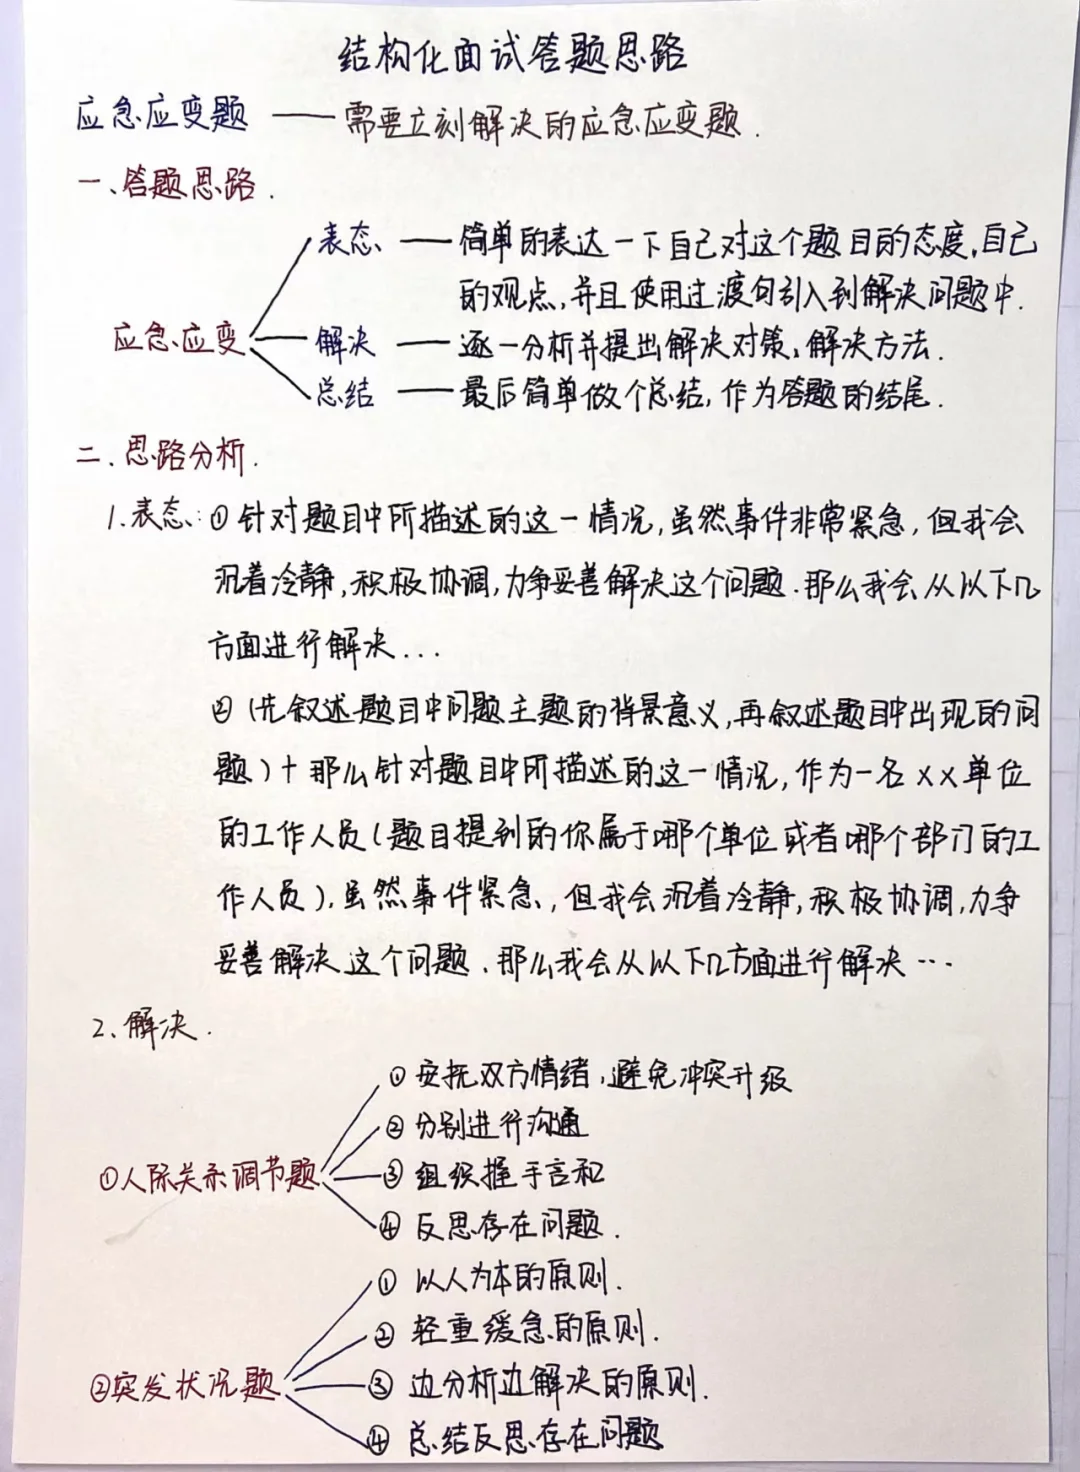 结构化面试答题思路
应急应变题 —— 需要立刻解决的应急应变题.
一、答题思路.
表态 —— 简单的表达一下自己对这个题目的态度,自己
的观点,并且使用过渡句引入到解决问题中.
应急应变
解决 —— 逐一分析并提出解决对策、解决方法.
总结 —— 最后简单做个总结,作为答题的结尾.
二、思路分析.
1、表态:①针对题目中所描述的这一情况,虽然事件非常紧急,但我会
沉着冷静,积极协调,力争妥善解决这个问题.那么我会从以下几
方面进行解决...
②(先叙述题目中问题主题的背景意义,再叙述题目中出现的问
题)+那么针对题目中所描述的这一情况,作为一名××单位
的工作人员(题目提到的你属于哪个单位或者哪个部门的工
作人员),虽然事件紧急,但我会沉着冷静,积极协调,力争
妥善解决这个问题、那么我会从以下几方面进行解决...
2、解决.
①人际关系调节题
①安抚双方情绪,避免冲突升级
②分别进行沟通
③组织握手言和
④反思存在问题.
②突发状况题
①以人为本的原则.
②轻重缓急的原则.
③边分析边解决的原则.
④总结反思存在问题